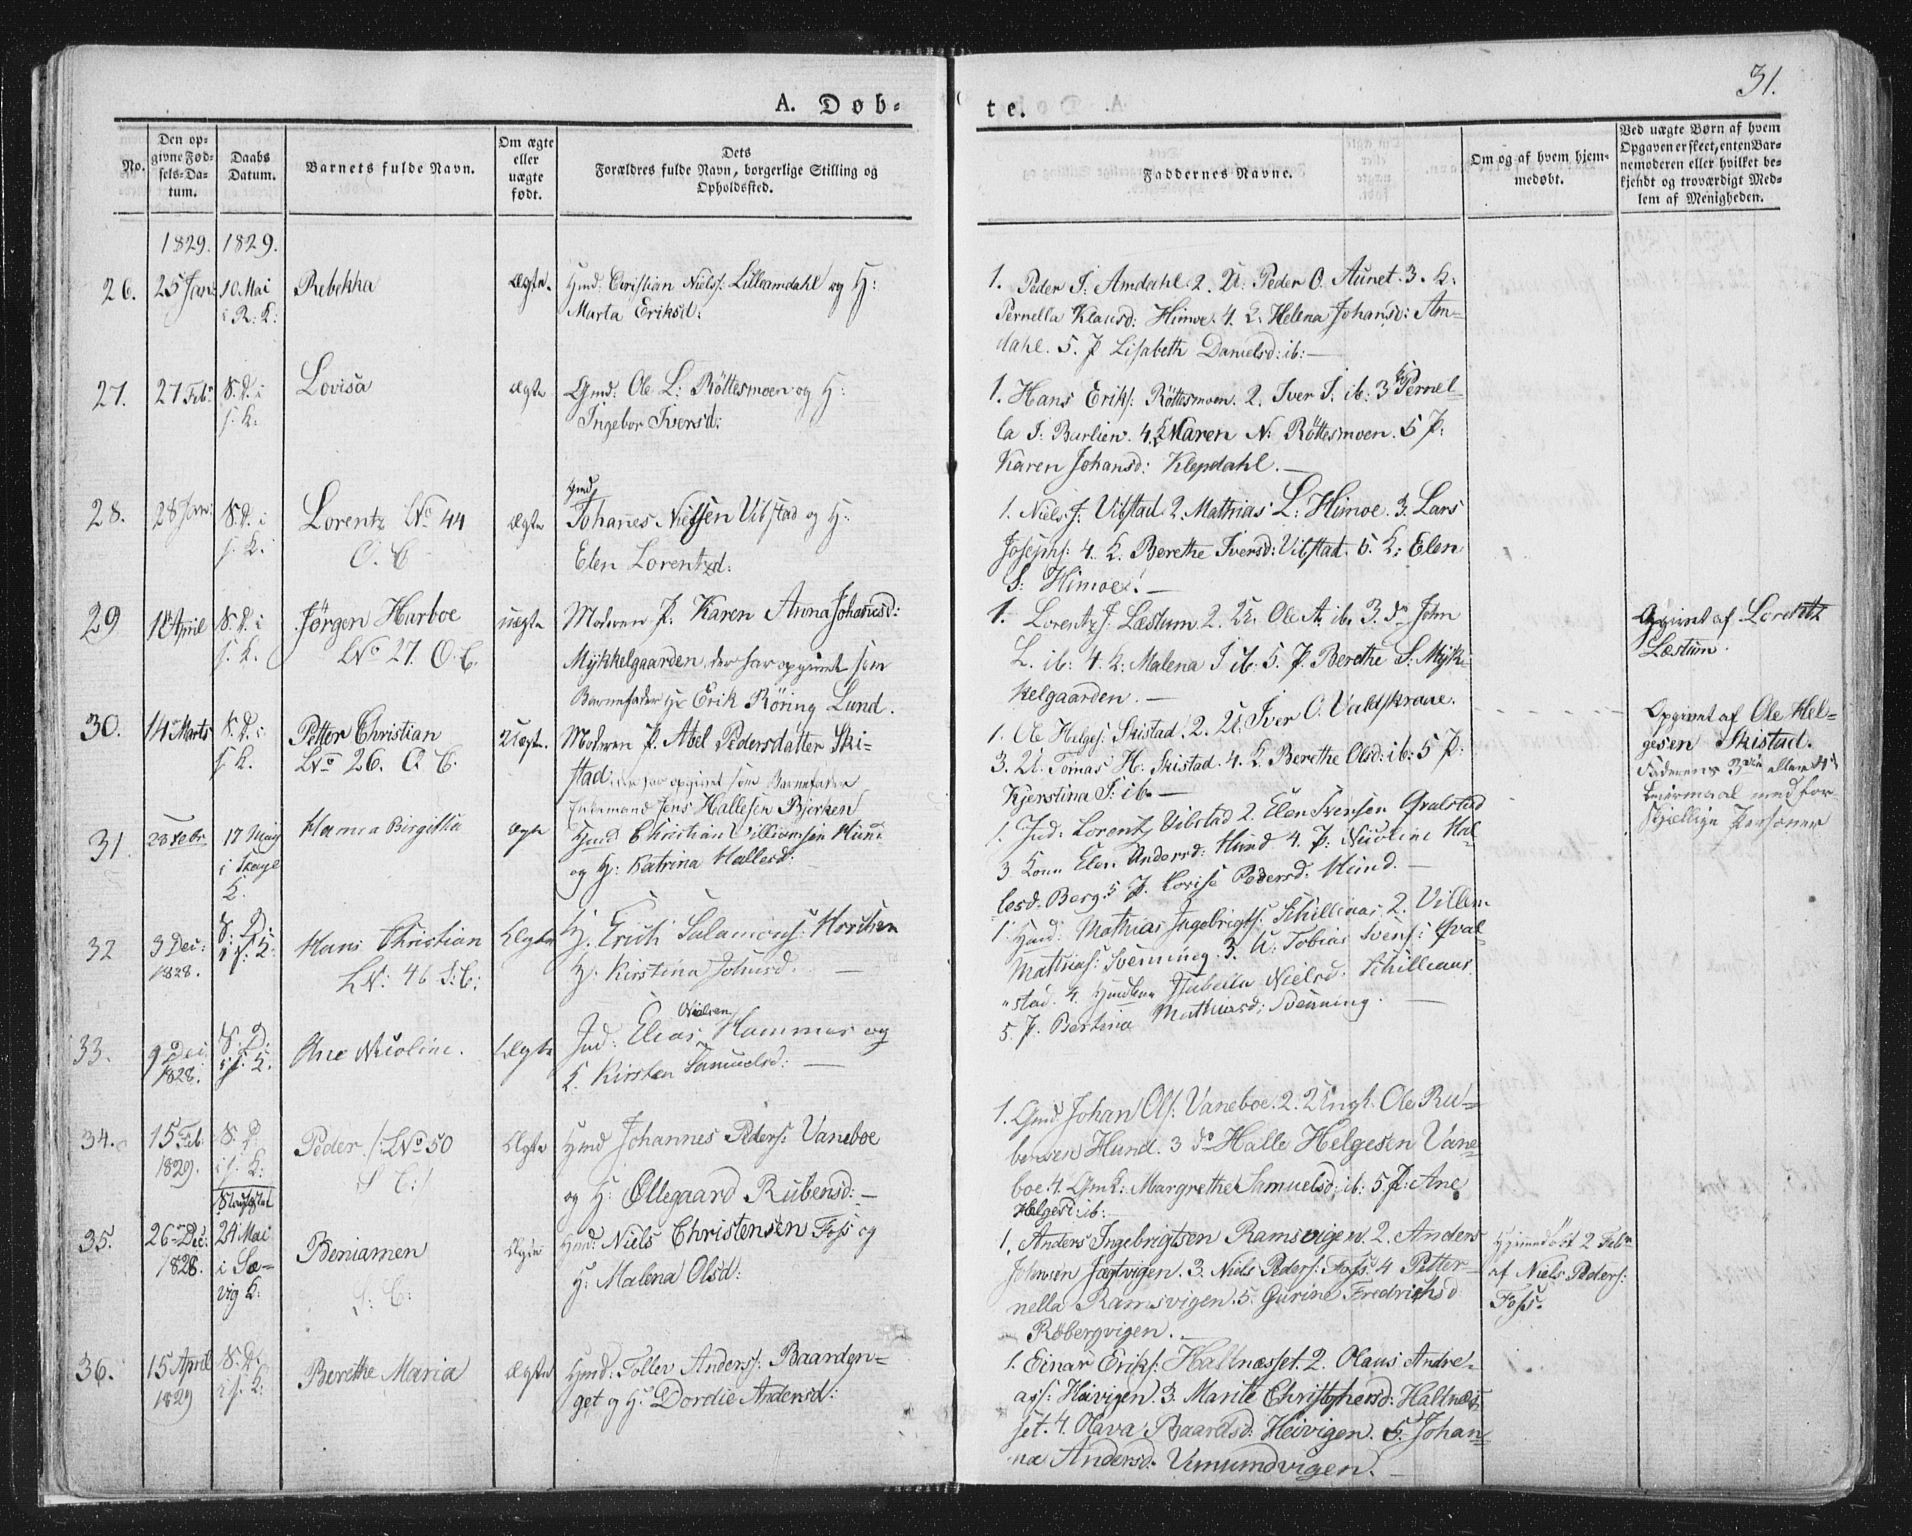 31.
A. Døb-
te.
No.
Den op-
givne Fød-
sels-Da-
tum.
Daabs
Datum.
Barnets fulde Navn.
Om ægte
eller
uægte
født.
Dets
Forældres fulde Navn, borgerlige Stilling og
Opholdsted.
Faddernes Navne.
Om og af hvem hjem-
medøbt.
Ved uægte Børn af hvem
Opgaven er skeet, enten Bar-
nemoderen eller hvilket be-
kjendt og troværdigt Med-
lem af Menigheden.
1829. 1829.
26. 25 Jan: 10 Mai
i R: K:
Rebekka
Ægte.
Hmd: Christian Niels: Lilleamdahl og H:
Marta Eriksd:
1. Peder J: Amdahl 2. U: Peder O. Aunet. 3. K:
Pernella Klausd: Himoe. 4. K. Helena Johansd: Am-
dahl. 5. P Lisabeth Danielsd: ib:
27. 27 Feb: S. D. i
s. K.
Lovisa
ægte
Gmd: Ole L: Röttesmoen og H:
Ingebor Iversd:
1. Hans Eriks: Röttesmoen. 2. Iver S. ib: 3 K Pernel-
la I: Barlien. 4. K Maren N: Röttesmoen. 5 P:
Karen Johansd: Klepdahl.
28. 28 Jan: S. D. i
s. K.
Lorentz No 44
O. C
ægte
Hmd
Johanes Nielsen Vibstad og H:
Elen Lorentzd:
1. Niels J: Vibstad 2. Mathias L: Himoe. 3. Lars
Josephs: 4. K. Berethe Iversd: Vibstad. 5. K: Elen
S: Himoe.
29 18 April S. D. i
s. K.
Jørgen Harboe
No 27. O. C.
uægte
Moderen P. Karen Anna Johanesd:
Mykkelgaarden, der har opgivet som
Barnefader Hr Erik Röring Lund.
1. Lorentz J: Læstum 2. U. Ole A. ib. 3. do John
L. ib: 4. K: Malena I ib: 5. P. Berethe S: Myk-
kelgaarden.
Opgivet af Lorentz
Læstum.
30. 14 Marts S. D. i
s. K.
Petter Christian
No 26. O C.
Uægte.
Moderen P. Abel Pedersdatter Ski-
stad der har opgivet som Barnefader
Jens Hallesen Bjerken
1. Ole Helges: Skistad. 2. U. Iver O. Valdskrave.
3. U. Tomas H. Skistad. 4. K Berethe Olsd: ib: 5 P:
Kjerstina S: ib.
Opgivet af Ole Hel-
gesen Skistad.
Leiermaal med for-
skjellige Personer
31. 28 Febr. 17 May
i Skage
K.
Hanna Birgitta
ægte
Hmd Christian Villiamsen Hun
og H: Katrina Hallesd:
1. Ind: Lorentz Vibstad 2. Elen Svensen Qvalstad
3 Kone Elen Andersd: Hund 4. P: Nicoline Hal-
lesd. Berg. 5 P. Lovise Pedersd: Hund.
32 3 Dec:
1828.
S: D:
i s: K:
Hans Christian
No: 46 S: C:
Ægte
H. Erich Salamons:
H: Kirstina Johnsd.
1 Hmd: Mathias Ingebrigts: Schillaas 2. Villem
Mathias: Svenning. 3. U: Tobias Svens: Qval-
stad. 4. Isabella Nielsd: Schillaas
5 P. Bertina Mathiasd: Svenning.
33. 9 Dec:
1828.
S: D:
i s: K:
Ane Nicoline.
Ægte
Nielsen
Ind: Elias Hammer og
K. Kirsten Samuelsd:
34. 15 Feb:
1829.
S: D
i s: K:
Peder /: No 50
S C:/
Ægte
Hmd Johannes Peders: Vaneboe
og H: Ollegaard Rubensd:
1. Gmd Johan Ols: Vaneboe. 2. Ungk: Ole Ru-
bensen Hund. 3 do Halle Helgesen Vane-
boe 4. GmK: Margrethe Samuelsd: ib: 5 P: Ane
Helgesd: ib:
35. 26 Dec:
1828.
24 Mai
i Sæ-
vig K:
Beniamen
S: C:
Ægte
Hmd: Niels Christensen Foss og
H: Malena Olsd:
1. Anders Ingebrigtsen Ramsvigen 2. Anders
Johnsen Jægtvigen. 3. Niels Peders: Foss 4 Petter-
nella Ramsvigen. 5. Gurine Fredrichsd
Röbergvigen.
Hjemdøbt 2 Febr
af Niels Peders:
Foss.
36. 15 April
1829
S: D.
i s: K:
Berethe Maria
Ægte
Hmd: Tollev Anders: Baarden-
get og H: Dordie Andersd:
1. Einar Eriks: Haltnæsset. 2. Olaus Andre-
ass: Heivigen. 3. Marite Christophersd: Haltnæs-
set. 4. Olava Baardsd: Heivigen. 5. Johan-
na Andersd: Vemundvigen.